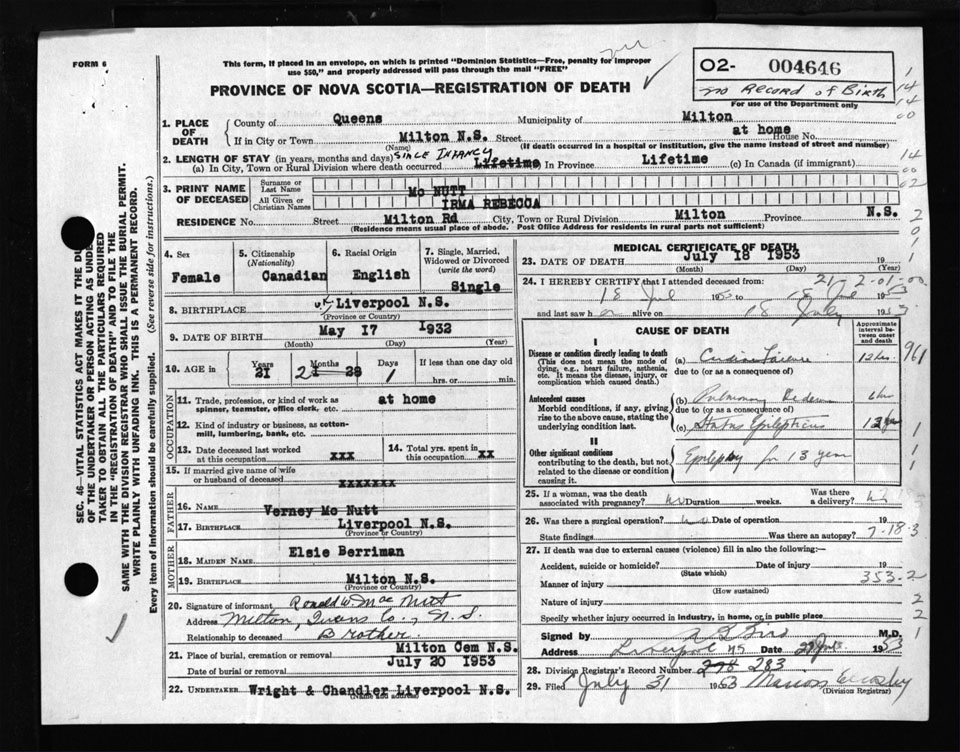 FORM 6
This form, if placed in an envelope, on which is printed "Dominion Statistics—Free, penalty for improper
use $50," and properly addressed will pass through the mail "FREE"
PROVINCE OF NOVA SCOTIA—REGISTRATION OF DEATH
02- 004646
No RECORD of Birth
For use of the Department only
1. PLACE OF DEATH
County of Queens Municipality of Milton
If in City or Town Milton N.S. Street at home House No.
(Name) (If death occurred in a hospital or institution, give the name instead of street and number)
2. LENGTH OF STAY (in years, months and days) SINCE INFANCY
(a) In City, Town or Rural Division where death occurred Lifetime In Province Lifetime (c) In Canada (if immigrant)
3. PRINT NAME OF DECEASED
Surname or Last Name Mc NUTT
All Given or Christian Names IRMA REBECCA
RESIDENCE No. Street Milton Rd City, Town or Rural Division Milton Province N.S.
(Residence means usual place of abode. Post Office Address for residents in rural parts not sufficient)
4. Sex Female
5. Citizenship (Nationality) Canadian
6. Racial Origin English
7. Single, Married, Widowed or Divorced (write the word) Single
8. BIRTHPLACE Liverpool N.S.
(Province or Country)
9. DATE OF BIRTH May 17 1932
(Month) (Day) (Year)
10. AGE in Years 21 Months 2 Days 1 If less than one day old
hrs. or min.
OCCUPATION
11. Trade, profession, or kind of work as spinner, teamster, office clerk, etc. at home
12. Kind of industry or business, as cotton-mill, lumbering, bank, etc.
13. Date deceased last worked at this occupation xxx
14. Total yrs. spent in this occupation xx
15. If married give name of wife or husband of deceased xxxxxxx
FATHER
16. Name Verney Mc Nutt
17. Birthplace Liverpool N.S.
(Province or Country)
MOTHER
18. Maiden Name Elsie Berriman
19. Birthplace Milton N.S.
(Province or Country)
20. Signature of informant Ronald W. Mac Nutt
Address Milton, Queens Co., N.S.
Relationship to deceased Brother
21. Place of burial, cremation or removal Milton Cem N.S.
Date of burial or removal July 20 1953
22. UNDERTAKER Wright & Chandler Liverpool N.S.
(Name and address)
MEDICAL CERTIFICATE OF DEATH
23. DATE OF DEATH July 18 1953
(Month) (Day) (Year)
24. I HEREBY CERTIFY that I attended deceased from:
18 Jul 1953 to 18 Jul 1953
and last saw her alive on 18 July 1953
CAUSE OF DEATH
Approximate interval between onset and death
I
Disease or condition directly leading to death
(This does not mean the mode of dying, e.g., heart failure, asthenia, etc. It means the disease, injury, or complication which caused death.)
(a) Cardiac Failure 12 hrs.
due to (or as a consequence of)
Antecedent causes
Morbid conditions, if any, giving rise to the above cause, stating the underlying condition last.
(b) Pulmonary Oedema 6 hrs
due to (or as a consequence of)
(c) Status Epilepticus 12 hrs
II
Other significant conditions
contributing to the death, but not related to the disease or condition causing it
Epilepsy for 13 years
961
25. If a woman, was the death associated with pregnancy? No Duration weeks. Was there a delivery? No
26. Was there a surgical operation? no Date of operation 19
State findings Was there an autopsy?
7-18-3
27. If death was due to external causes (violence) fill in also the following:—
Accident, suicide or homicide? Date of injury 19
(State which)
353-2
Manner of injury
(How sustained)
Nature of injury
Specify whether injury occurred in industry, in home, or in public place
Signed by M.D.
Address Liverpool NS Date 1953
28. Division Registrar's Record Number 283
29. Filed July 31 1953
(Division Registrar)
SEC. 46—VITAL STATISTICS ACT MAKES IT THE DUTY
OF THE UNDERTAKER OR PERSON ACTING AS UNDERTAKER
TO OBTAIN ALL THE PARTICULARS REQUIRED
IN THE "REGISTRATION OF DEATH" AND TO FILE THE
SAME WITH THE DIVISION REGISTRAR WHO SHALL ISSUE THE BURIAL PERMIT.
WRITE PLAINLY WITH UNFADING INK. THIS IS A PERMANENT RECORD.
Every item of information should be carefully supplied. (See reverse side for instructions.)